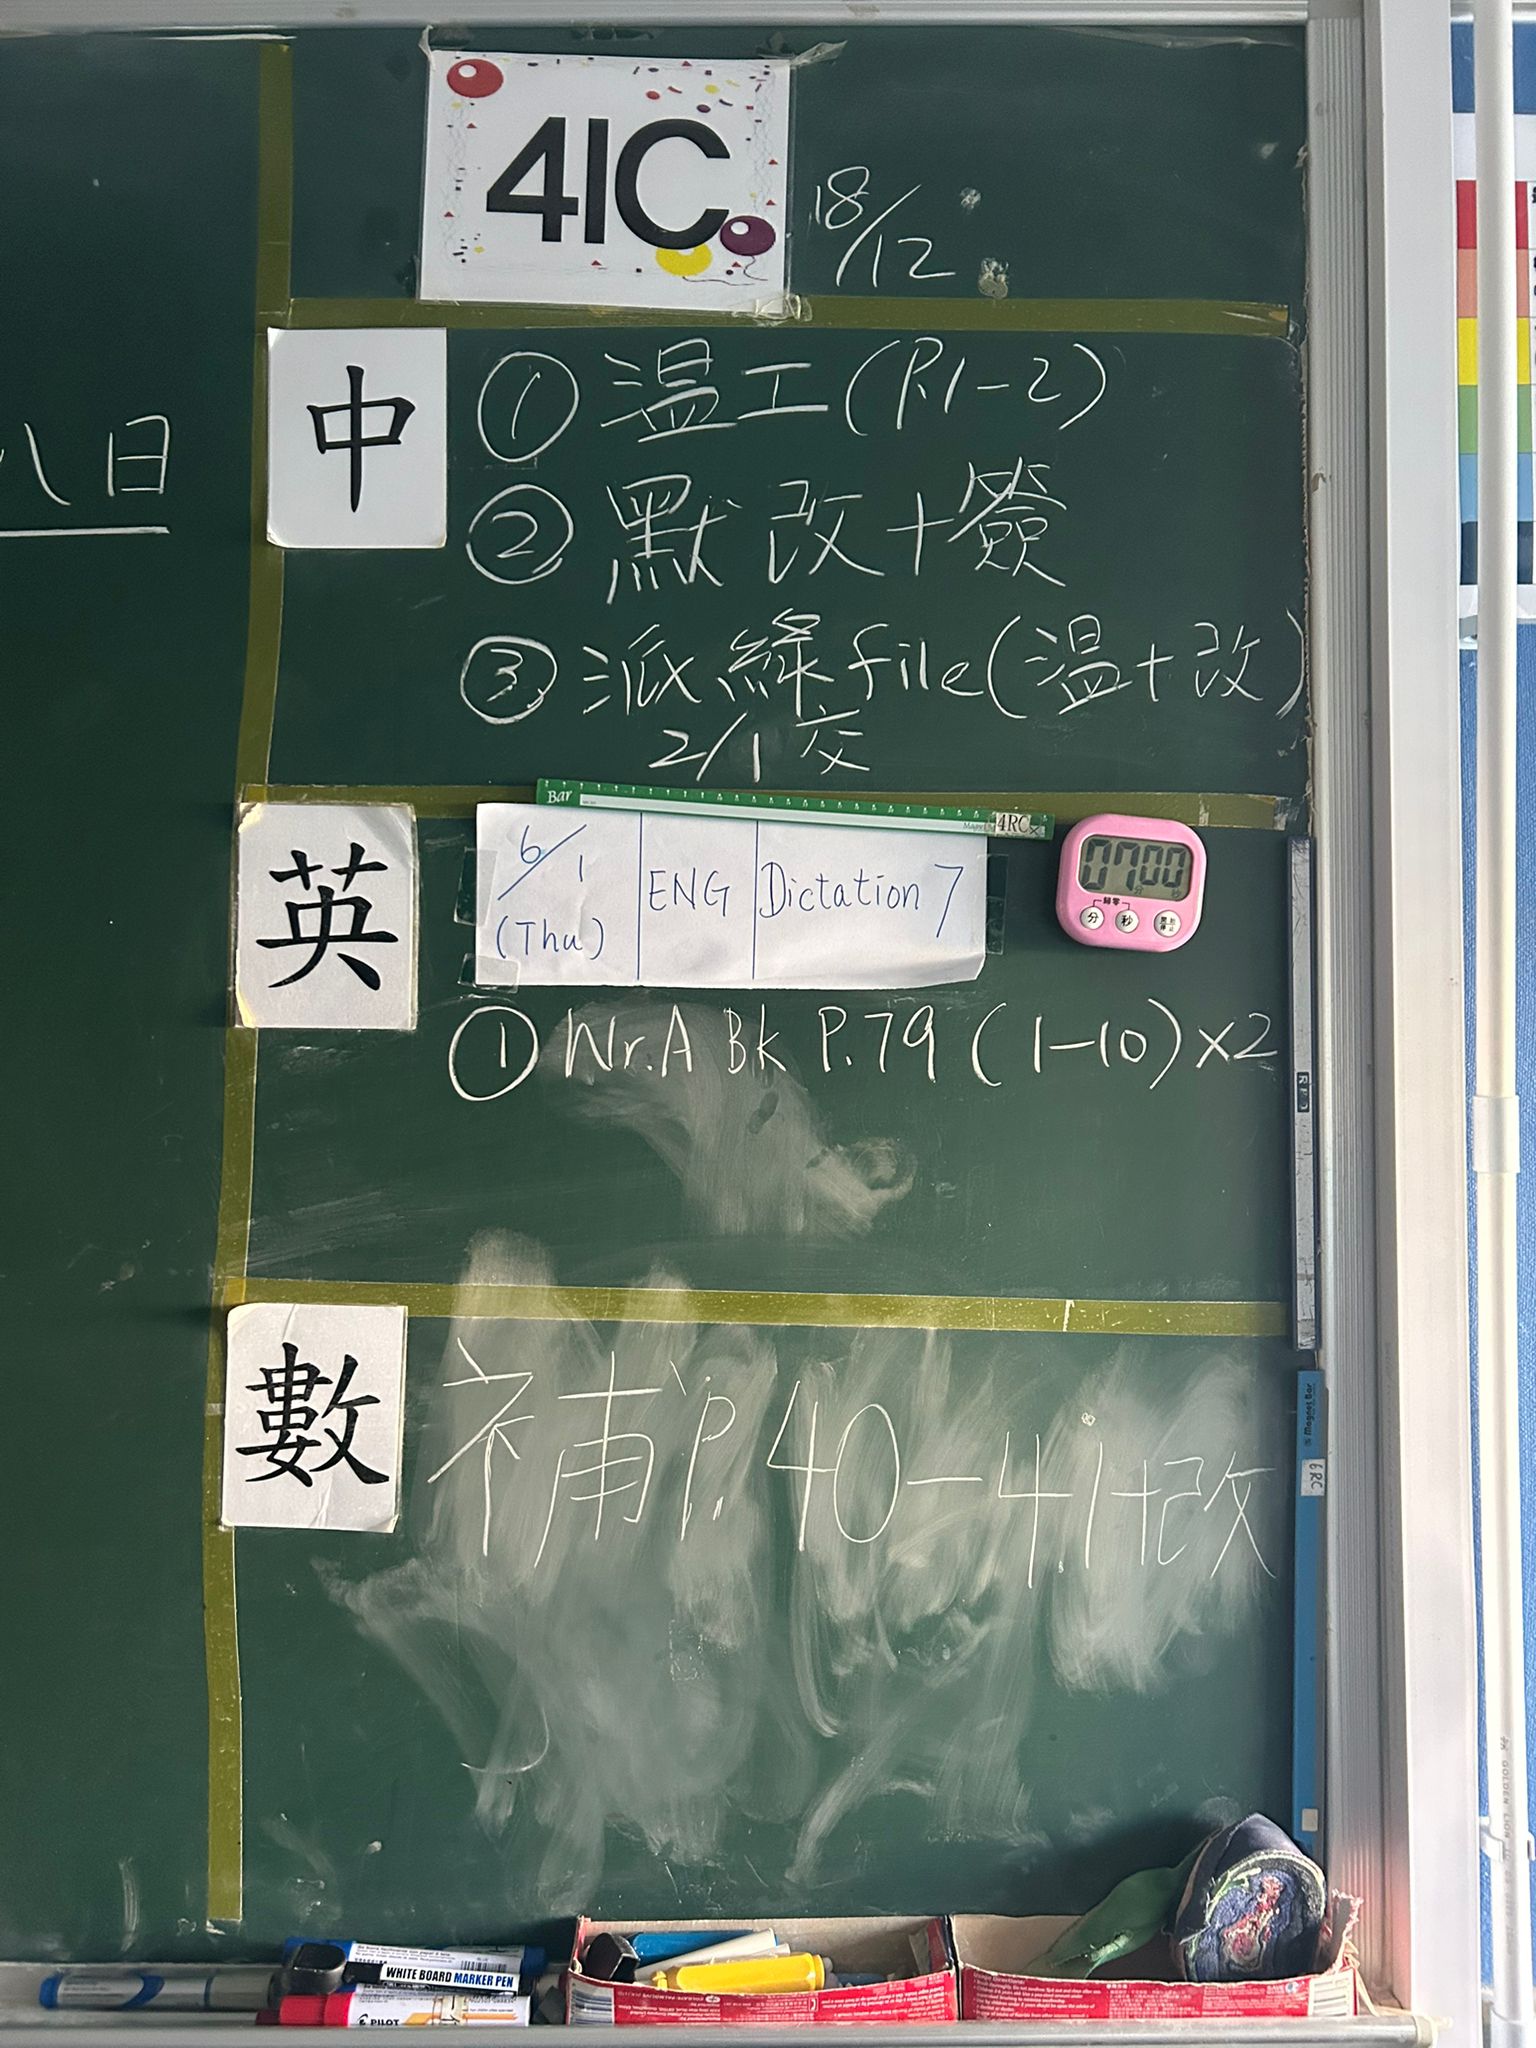 41C
18/12
八日
中
① 温工(P.1-2)
② 默改+簽
③ 派綠file(温+改)
2/1交
Bar
4RC
英
6/1
(Thu)
ENG
Dictation 7
07 00
分 秒
① Wr.A BK P.79 (1-10)×2
數
補P.40-41+改
Magnet Bar
6RC
WHITE BOARD MARKER PEN
PILOT